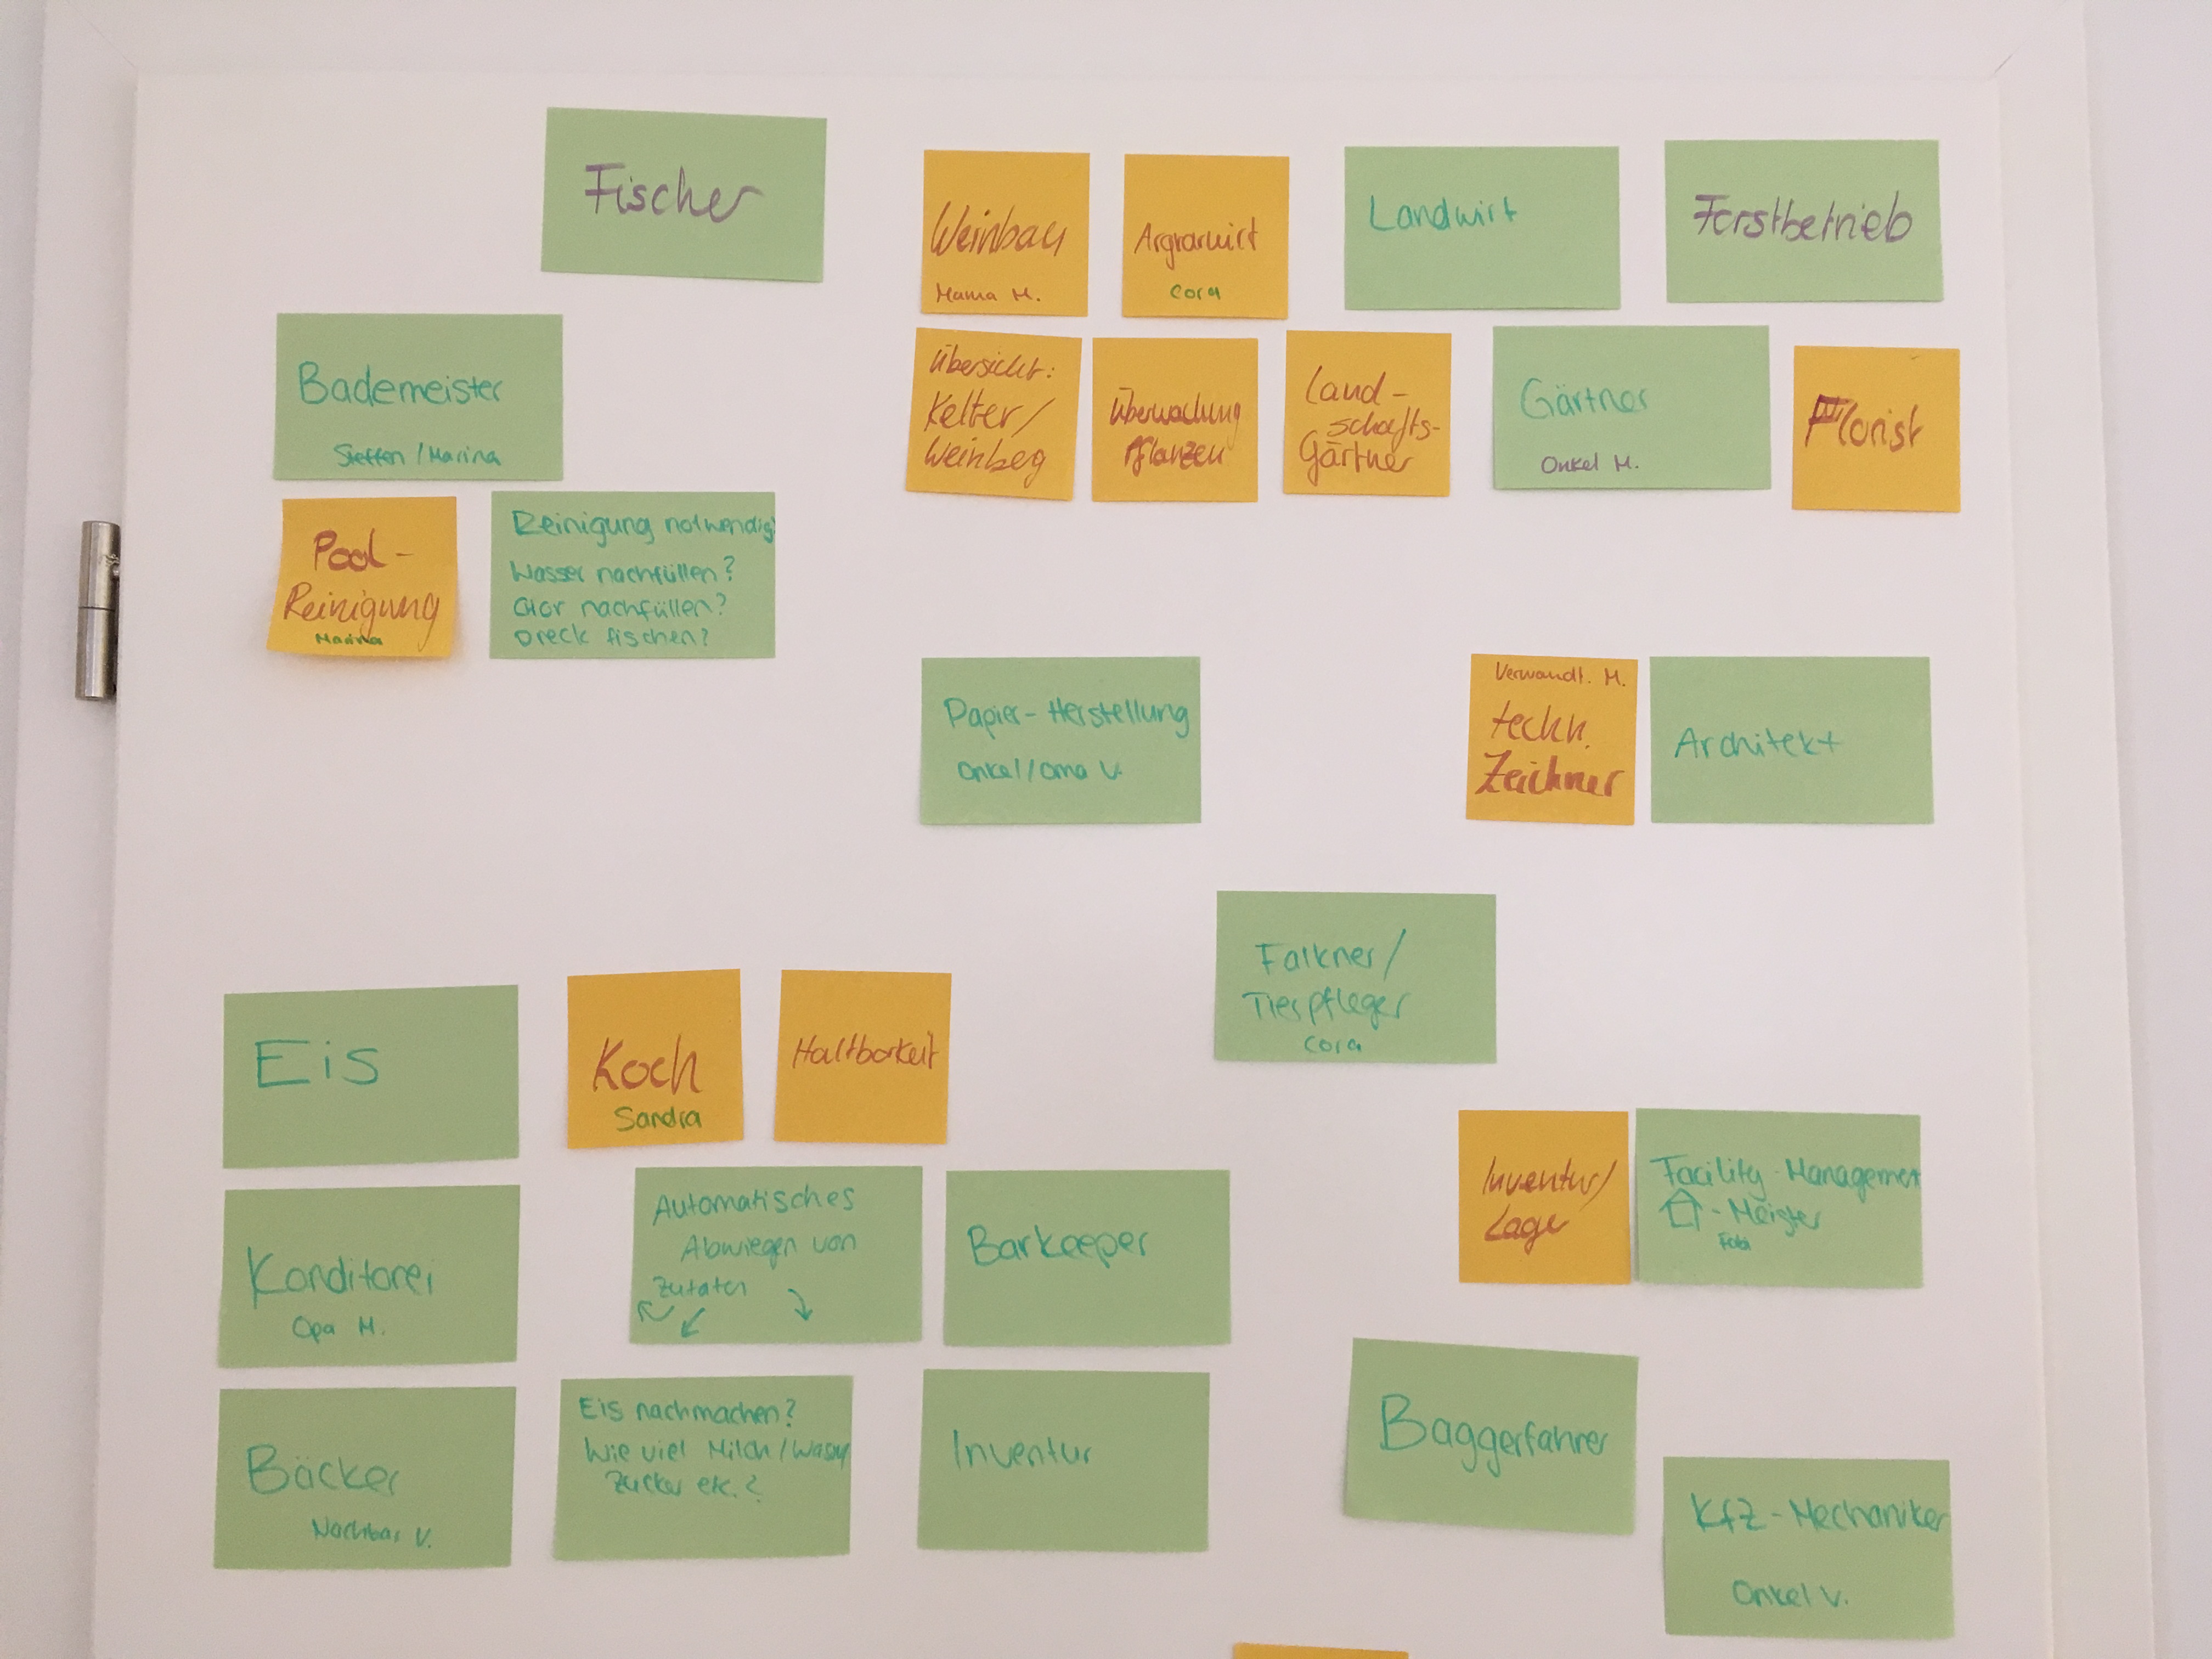 Fischer
Weinbau
Mama M.
Argrarwirt
Cora
Landwirt
Forstbetrieb
Bademeister
Steffen / Marina
Übersicht:
Kelter/
Weinbeg
Überwachung
Pflanzen
Land-
schafts-
Gärtner
Gärtner
Onkel M.
Florist
Pool-
Reinigung
Marina
Reinigung notwendig?
Wasser nachfüllen?
Clor nachfüllen?
Dreck fischen?
Papier-Herstellung
Onkel/Oma V.
Verwandt. M.
techn.
Zeichner
Architekt
Falkner/
Tierpfleger
Cora
Eis
Koch
Sandra
Haltbarkeit
Inventur/
Lage
Facility-Management
-Meister
Fabi
Konditorei
Opa M.
Automatisches
Abwiegen von
Zutaten
Barkeeper
Bäcker
Nachbar V.
Eis nachmachen?
Wie viel Milch/Wasser
Zucker etc.?
Inventur
Baggerfahrer
KfZ-Mechaniker
Onkel V.